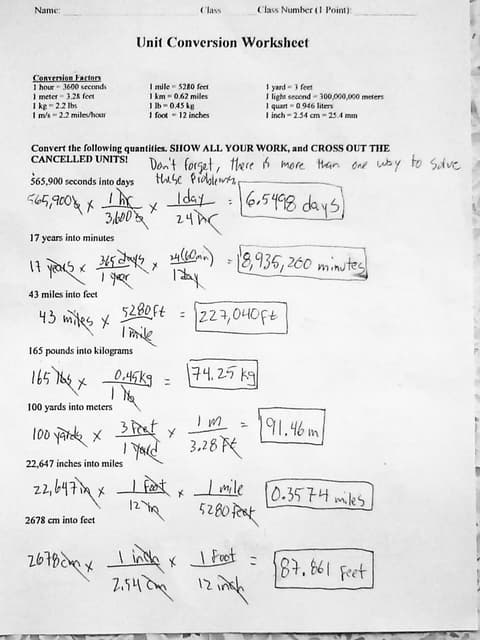 Name: Class Class Number (1 Point):
Unit Conversion Worksheet
Conversion Factors
1 hour = 3600 seconds 1 mile = 5280 feet 1 yard = 3 feet
1 meter = 3.28 feet 1 km = 0.62 miles 1 light second = 300,000,000 meters
1 kg = 2.2 lbs 1 lb = 0.45 kg 1 quart = 0.946 liters
1 m/s = 2.2 miles/hour 1 foot = 12 inches 1 inch = 2.54 cm = 25.4 mm
Convert the following quantities. SHOW ALL YOUR WORK, and CROSS OUT THE
CANCELLED UNITS! Don't forget, there is more than one way to solve
these problems.
565,900 seconds into days
565,900 s × 1 hr / 3,600 s × 1 day / 24 hr = 6.5498 days
17 years into minutes
17 years × 365 days / 1 year × 24(60 min) / 1 day = 8,935,200 minutes
43 miles into feet
43 miles × 5280 ft / 1 mile = 227,040 ft
165 pounds into kilograms
165 lbs × 0.45 kg / 1 lb = 74.25 kg
100 yards into meters
100 yards × 3 feet / 1 yard × 1 m / 3.28 ft = 91.46 m
22,647 inches into miles
22,647 in × 1 foot / 12 in × 1 mile / 5280 feet 0.3574 miles
2678 cm into feet
2678 cm × 1 inch / 2.54 cm × 1 foot / 12 inch = 87.861 feet